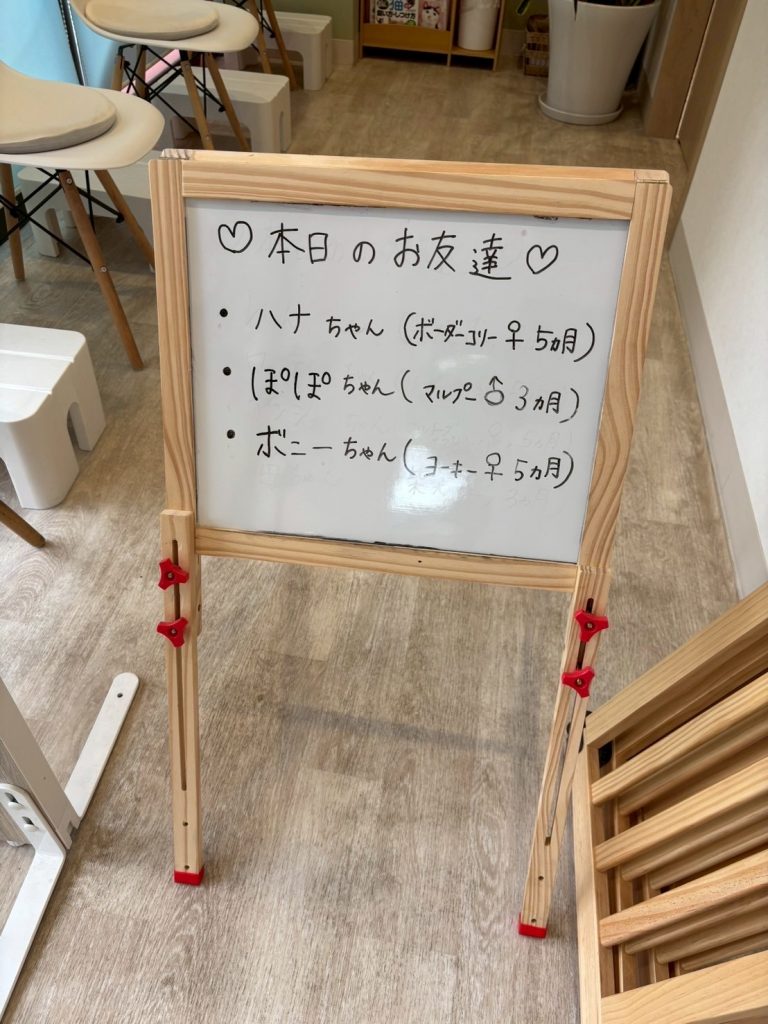 ♡ 本日のお友達 ♡
・ハナちゃん (ボーダーコリー ♀ 5ヵ月)
・ぽぽちゃん (マルプー ♂ 3ヵ月)
・ボニーちゃん (ヨーキー ♀ 5ヵ月)